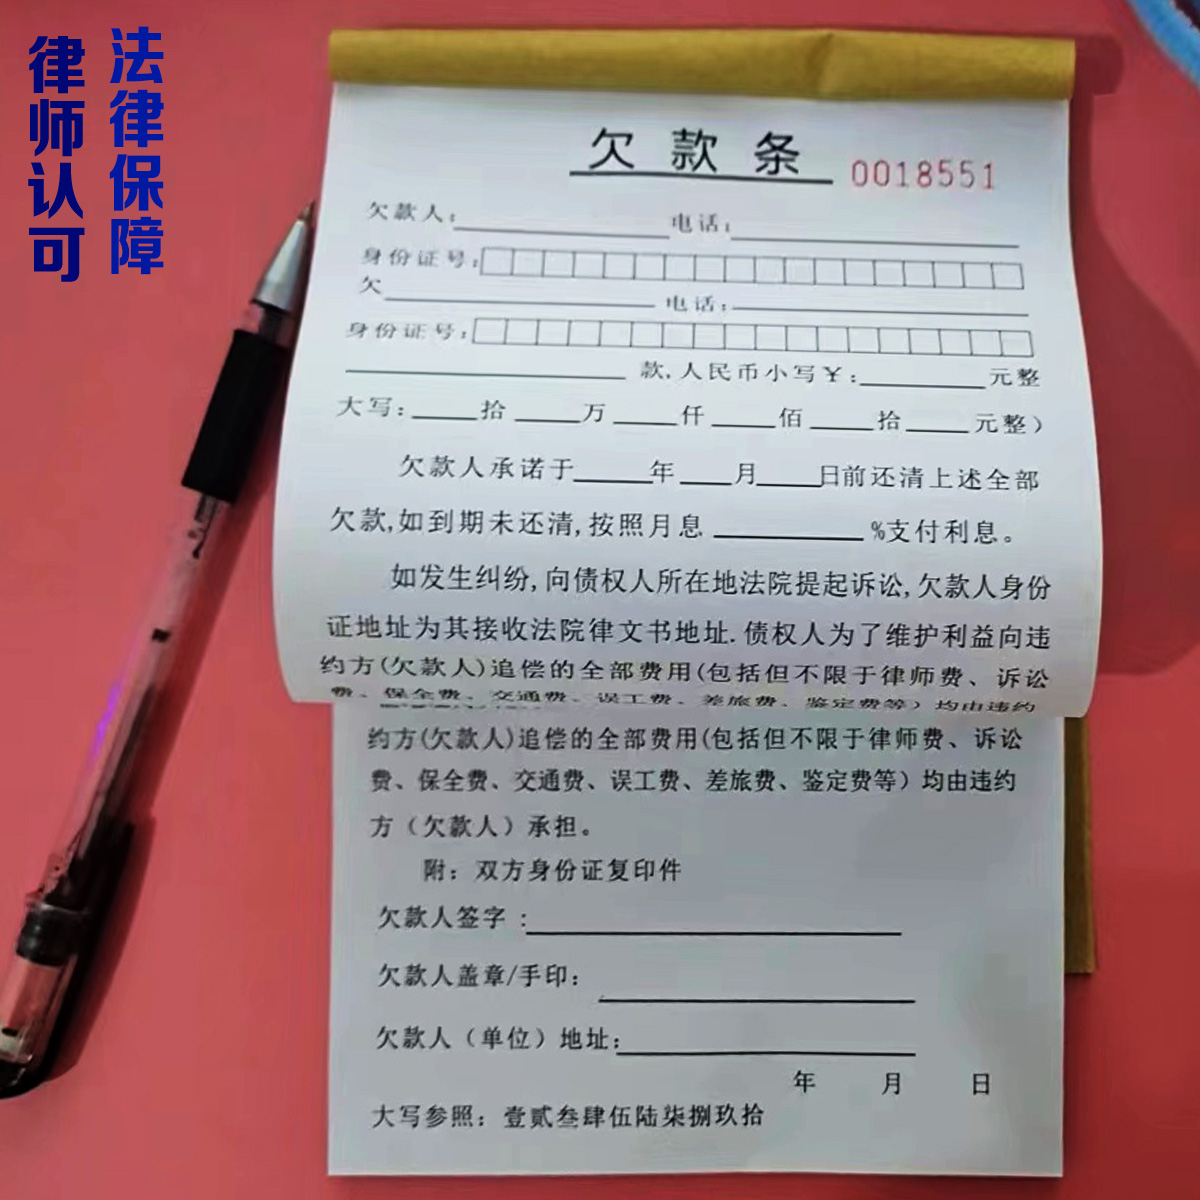 法律保障
律师认可
欠款条 0018551
欠款人: 电话:
身份证号:
欠 电话:
身份证号:
款,人民币小写￥: 元整
大写: 拾 万 仟 佰 拾 元整）
欠款人承诺于 年 月 日前还清上述全部
欠款,如到期未还清,按照月息 %支付利息。
如发生纠纷,向债权人所在地法院提起诉讼,欠款人身份
证地址为其接收法院律文书地址.债权人为了维护利益向违
约方(欠款人)追偿的全部费用(包括但不限于律师费、诉讼
费、保全费、交通费、误工费、差旅费、鉴定费等）均由违约
约方(欠款人)追偿的全部费用(包括但不限于律师费、诉讼
费、保全费、交通费、误工费、差旅费、鉴定费等）均由违约
方（欠款人）承担。
附：双方身份证复印件
欠款人签字：
欠款人盖章/手印：
欠款人（单位）地址：
年 月 日
大写参照：壹贰叁肆伍陆柒捌玖拾